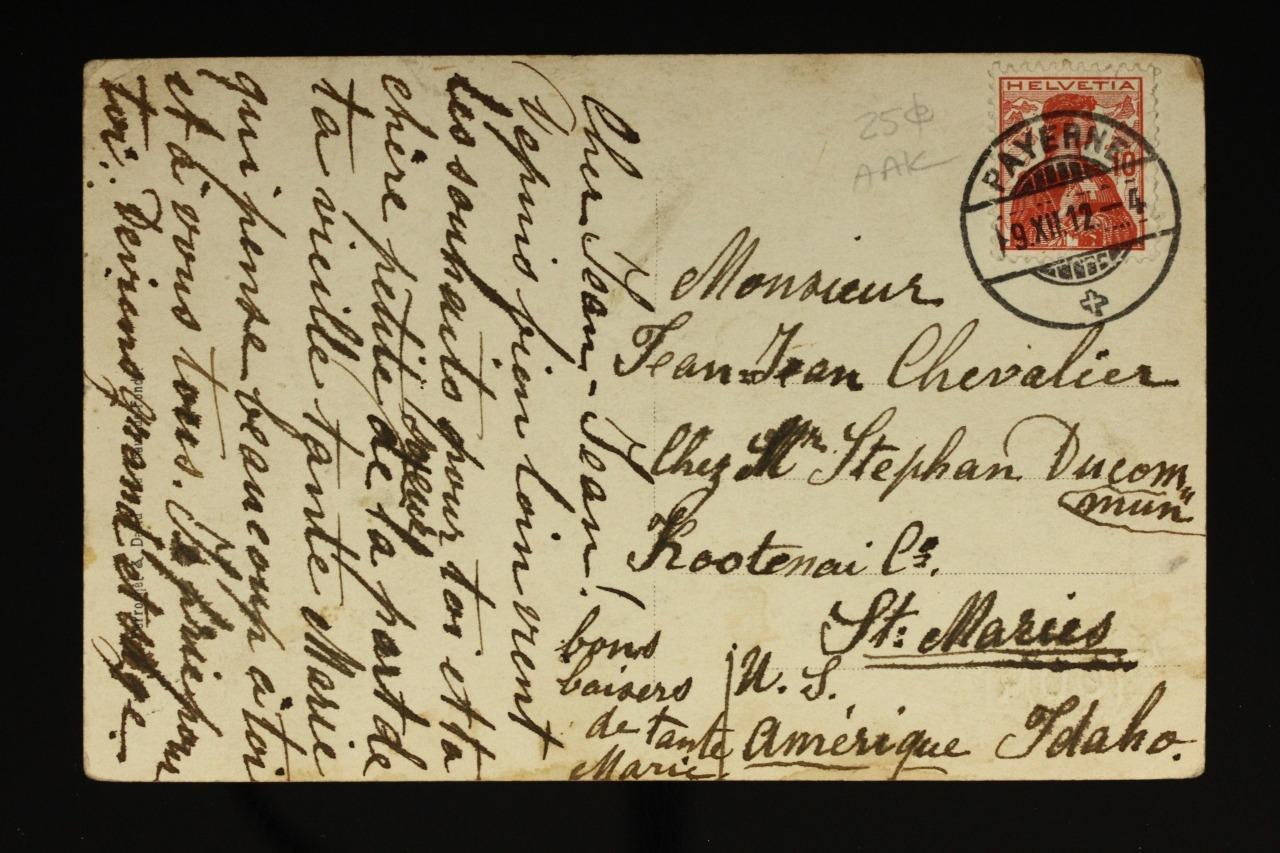 Cher Jean-Jean!
Depuis bien loin vient
les souhaits pour toi et ta
chère petite sœur de la part de
ta vieille tante Marie
qui pense beaucoup à toi
et à vous tous. Je prie pour
toi. Deviens grand et sage.
bons
baisers
de tante
Marie.
25¢
AAK
HELVETIA
10
PAYERNE
9.XII.12.-4
Monsieur
Jean-Jean Chevalier
Chez Mr Stephan Ducom
mun
Kootenai Co.
St: Maries
U. S.
Amérique Idaho.